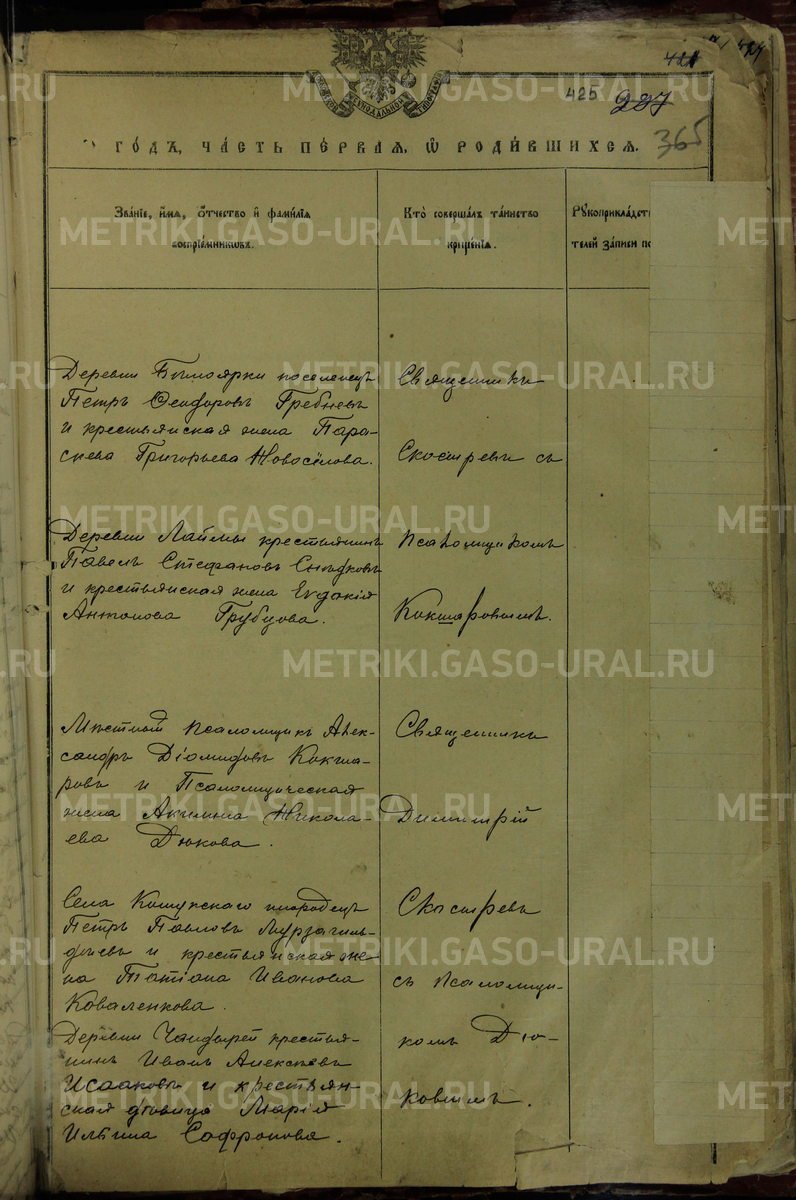 425
365
ГОДЪ, ЧАСТЬ ПЕРВАЯ, Ѿ РОДИВШИХСЯ.
Званіе, имя, отчество и фамилія
воспріемниковъ.
Кто совершалъ таинство
крещенія.
Рукоприкладст
телей записи по
Деревни поселенецъ
Петръ Ѳеодоровъ Гребневъ
и крестьянская жена Пара-
скева Григорьева Новосёлова.
Священникъ
Скосыревъ съ
Деревни Лаймы крестьянинъ
Павелъ Стефановъ
и крестьянская жена Евдокія
Антонова Грубцова.
Псаломщикомъ
Кокшаровымъ.
Мѣстный псаломщикъ Алек-
сандръ Діомидовъ Кокша-
ровъ и Псаломщическая
жена Акилина Никола-
ева Дюкова.
Священникъ
Димитрій
Села Кошукскаго инородецъ
Петръ Павловъ Мурзагиль-
дѣевъ и крестьянская же-
на Татіана Иванова
Коваленкова.
Скосыревъ
съ псаломщи-
Деревни Чандырей крестья-
нинъ Иванъ Алексѣевъ
Исааковъ и крестьян-
ская дѣвица Марія
Ильина Софронова.
комъ Дю-
ковымъ.
METRIKI.GASO-URAL.RU